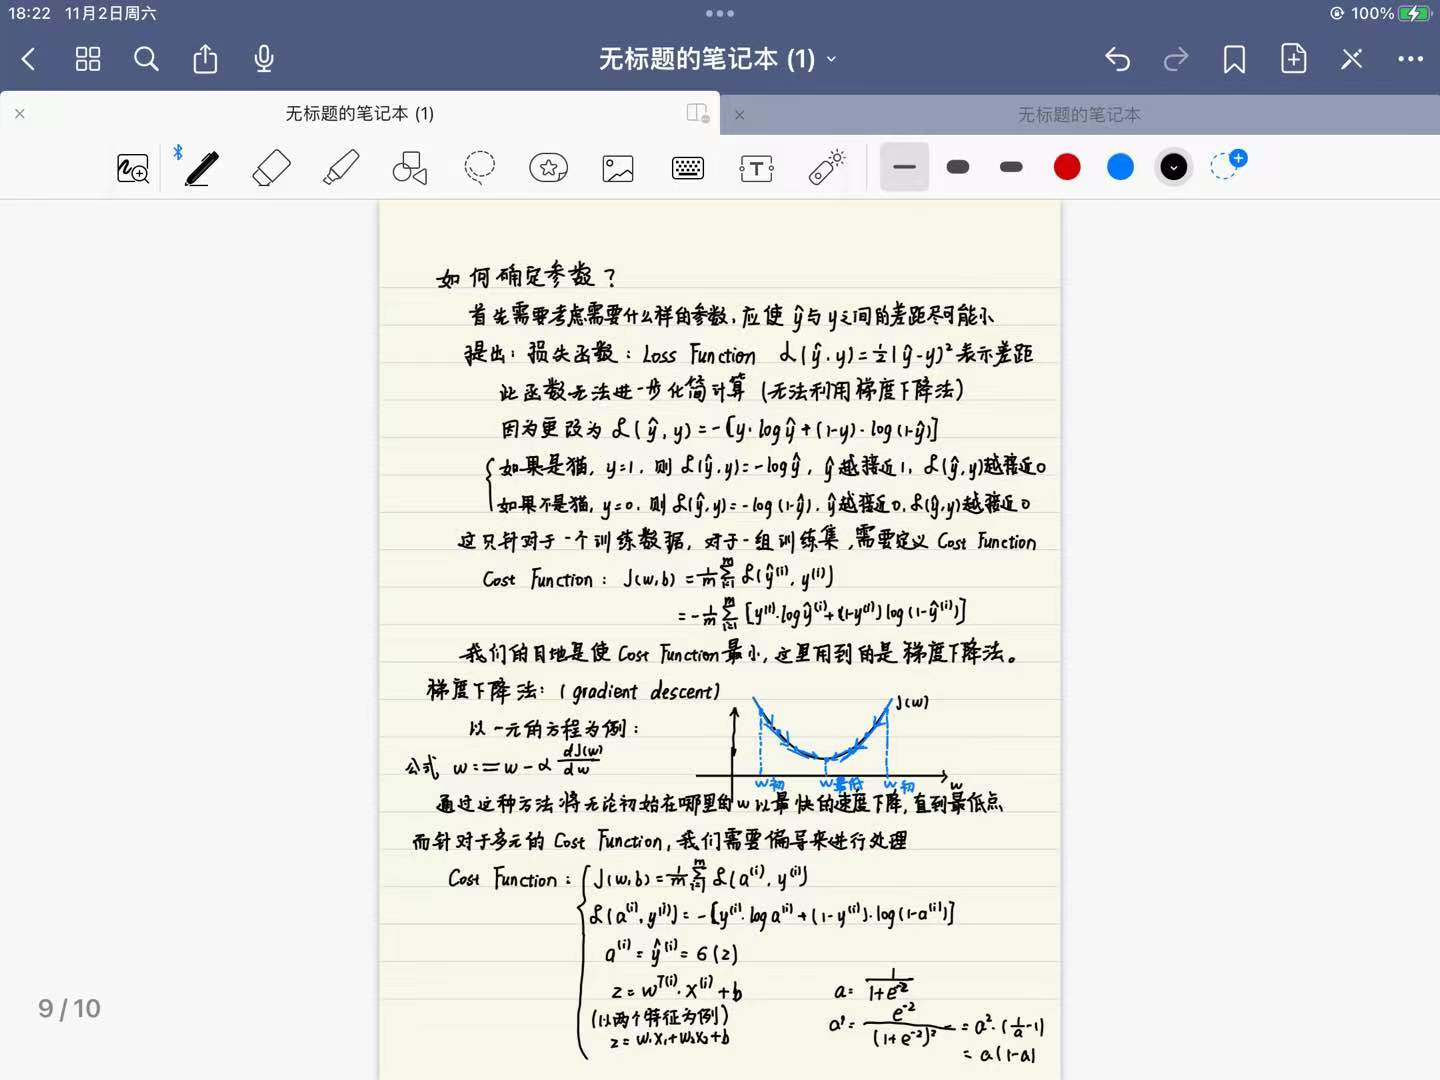 18:22 11月2日周六
100%
无标题的笔记本 (1)
无标题的笔记本 (1)
无标题的笔记本
如何确定参数？
首先需要考虑需要什么样的参数，应使 ŷ与y之间的差距尽可能小
提出：损失函数：Loss Function ℒ(ŷ,y)=½(ŷ-y)² 表示差距
此函数无法进一步化简计算（无法利用梯度下降法）
因为更改为 ℒ(ŷ,y)=-[y·logŷ+(1-y)·log(1-ŷ)]
如果是猫，y=1，则 ℒ(ŷ,y)=-logŷ，ŷ越接近1，ℒ(ŷ,y)越接近0
如果不是猫，y=0，则 ℒ(ŷ,y)=-log(1-ŷ)，ŷ越接近0，ℒ(ŷ,y)越接近0
这只针对于一个训练数据，对于一组训练集，需要定义 Cost Function
Cost Function：J(w,b)=1/m Σ(i=1..m) ℒ(ŷ⁽ⁱ⁾,y⁽ⁱ⁾)
=-1/m Σ(i=1..m) [y⁽ⁱ⁾·logŷ⁽ⁱ⁾+(1-y⁽ⁱ⁾)log(1-ŷ⁽ⁱ⁾)]
我们的目地是使 Cost Function最小，这里用到的是梯度下降法。
梯度下降法：(gradient descent)
J(w)
以一元的方程为例：
公式 w:=w-α dJ(w)/dw
w初 w最低 w初 w
通过这种方法将无论初始在哪里的w以最快的速度下降，直到最低点
而针对于多元的 Cost Function，我们需要偏导来进行处理
Cost Function：J(w,b)=1/m Σ(i=1..m) ℒ(a⁽ⁱ⁾,y⁽ⁱ⁾)
ℒ(a⁽ⁱ⁾,y⁽ⁱ⁾)=-[y⁽ⁱ⁾·loga⁽ⁱ⁾+(1-y⁽ⁱ⁾)·log(1-a⁽ⁱ⁾)]
a⁽ⁱ⁾=ŷ⁽ⁱ⁾=σ(z)
z=wᵀ⁽ⁱ⁾·x⁽ⁱ⁾+b
(以两个特征为例)
z=w₁x₁+w₂x₂+b
a=1/(1+e^-z)
a'=e^-z/(1+e^-z)²=a²·(1/a-1)
=a(1-a)
9/10